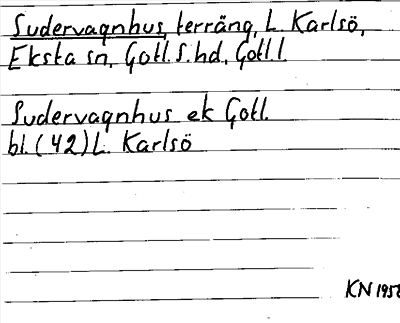 Sudervagnhus, terräng, L. Karlsö,
Eksta sn, Gotl. S. hd, Gotl l.
Sudervagnhus ek Gotl.
bl. (42) L. Karlsö
KN 1958